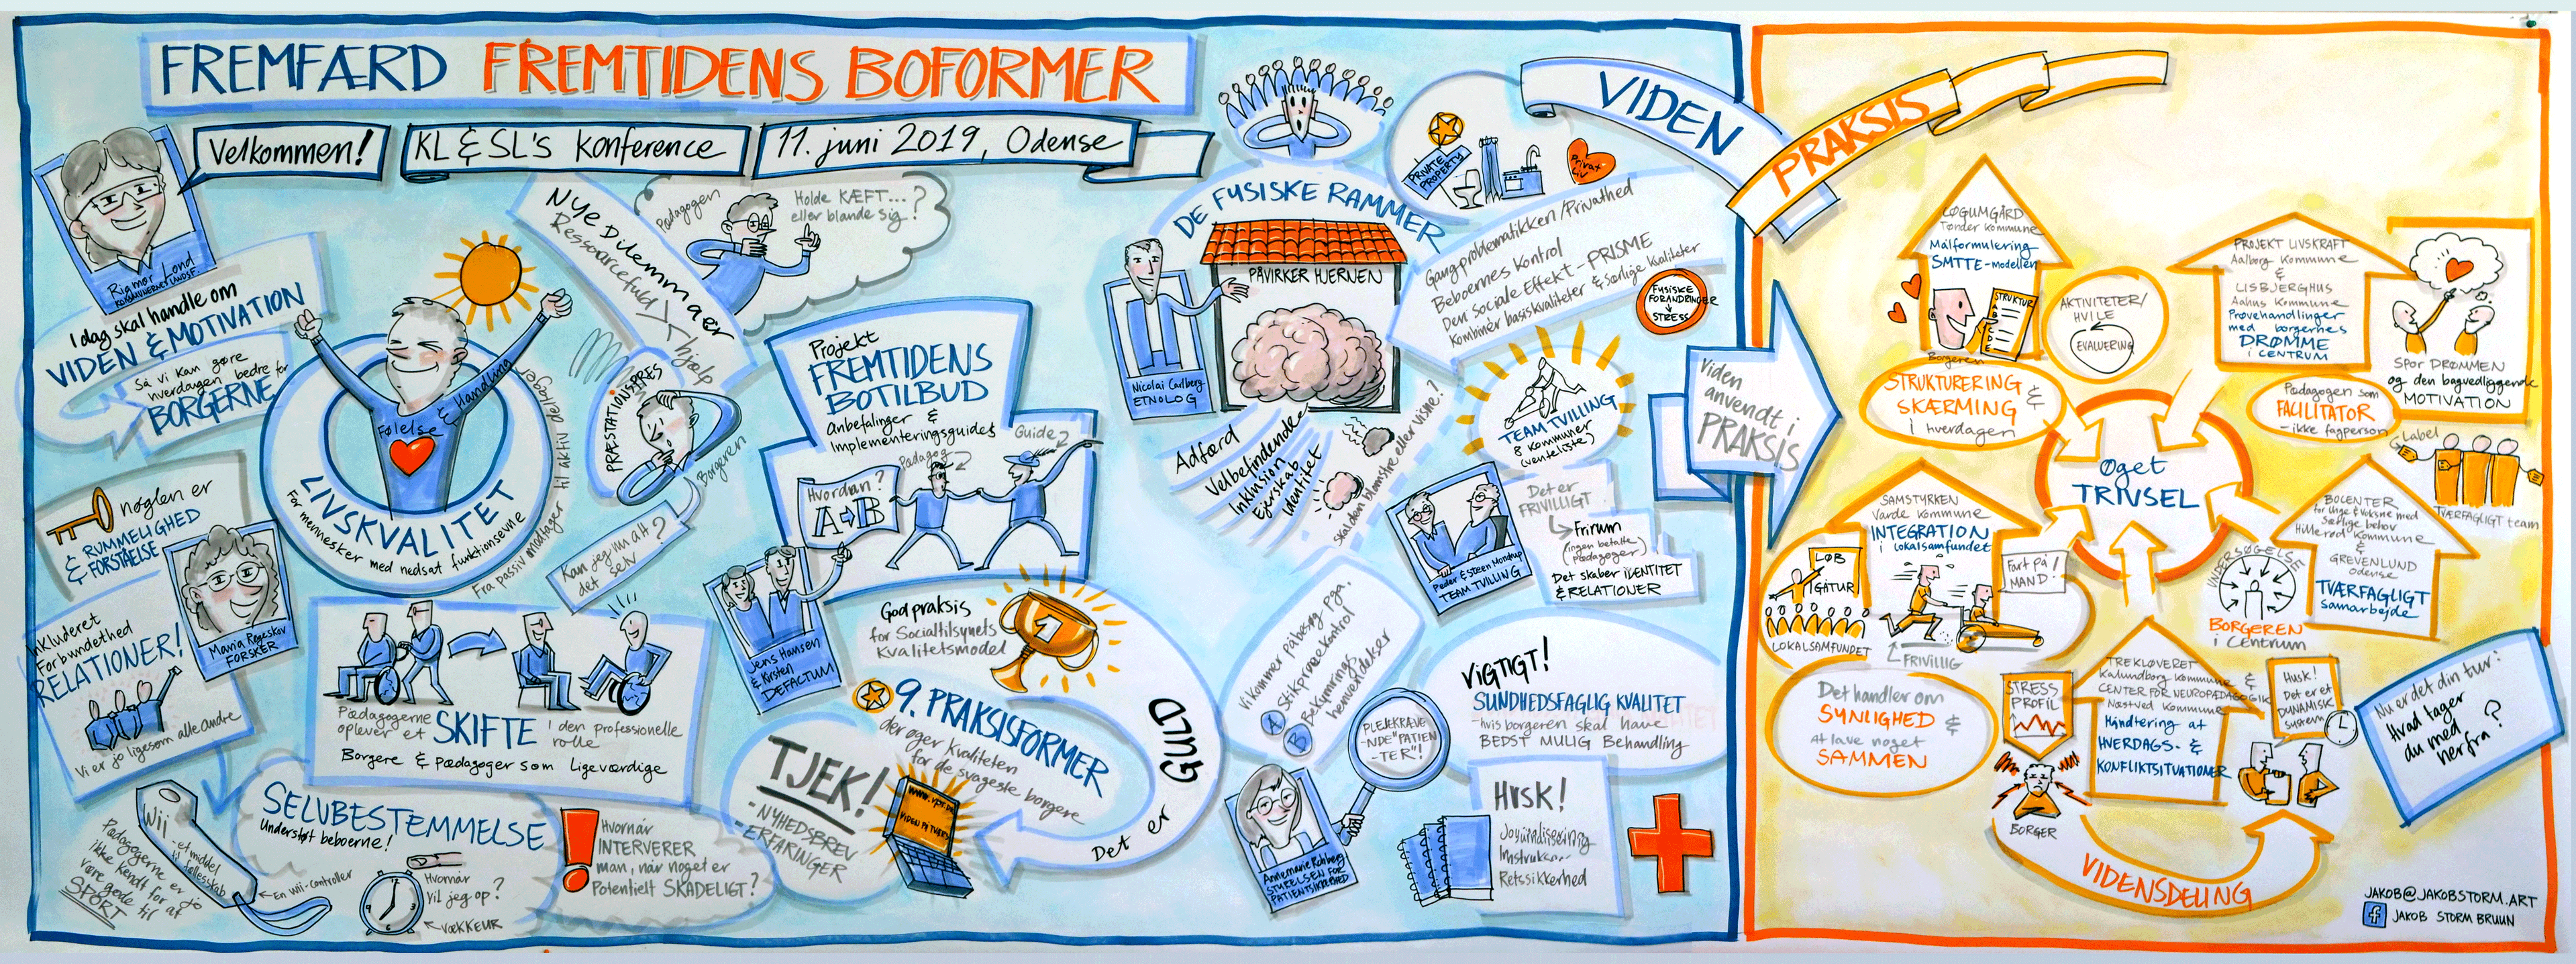 FREMFÆRD FREMTIDENS BOFORMER
Velkommen!
KL & SL's Konference
11. juni 2019, Odense
Rigmor Lond
KOMMUNERNES LANDSF.
I dag skal handle om
VIDEN & MOTIVATION
Så vi kan gøre
hverdagen bedre for
BORGERNE
Følelse & Handling
LIVSKVALITET
For mennesker med nedsat funktionsevne
Fra passiv modtager til aktiv deltager
nøglen er
RUMMELIGHED
& FORSTÅELSE
Maria Røgeskov
FORSKER
Inkluderet
Forbundethed
RELATIONER!
Vi er jo ligesom alle andre
Pædagogerne
oplever et
SKIFTE
i den professionelle
rolle
Borgere & pædagoger som ligeværdige
Wii
- et middel
til fællesskab
← En wii-controller
Pædagogerne er jo
ikke kendt for at
være gode til
SPORT
SELVBESTEMMELSE
Understøt beboerne!
Hvornår
vil jeg op?
VÆKKEUR
Hvornår
INTERVERER
man, når noget er
Potentielt SKADELIGT?
NYE Dilemmaer
Ressourcefuld
hjælp
Pædagogen
Holde KÆFT...
eller blande sig?
PRÆSTATIONSPRES
Borgeren
Kan jeg nu alt
det selv?
Projekt
FREMTIDENS
BOTILBUD
Anbefalinger &
Implementeringsguides
Guide
Pædagog
Hvordan?
A → B
Jens Hansen
& Kirsten
DEFACTUM
God praksis
for Socialtilsynets
Kvalitetsmodel
1
9. PRAKSISFORMER
der øger kvaliteten
for de svageste borgere
Det er GULD
TJEK!
- NYHEDSBREV
- ERFARINGER
www.vpt.dk
VIDEN PÅ TVÆRS
DE FYSISKE RAMMER
PÅVIRKER HJERNEN
Nicolai Carlberg
ETNOLOG
Adfærd
Velbefindende
Inklusion
Ejerskab
Identitet
Skal den blomstre eller visne?
PRIVATE
PROPERTY
Privat
liv
Gangproblematikken/Privathed
Beboernes kontrol
Den Sociale Effekt - PRISME
Kombinér basiskvaliteter & Særlige kvaliteter
FYSISKE
FORANDRINGER
STRESS
TEAM TVILLING
8 kommuner
(venteliste)
Peder & Steen Mondrup
TEAM TVILLING
Det er
FRIVILLIGT
Frirum
(ingen betalte
pædagoger)
Det skaber IDENTITET
& RELATIONER
Vi kommer på besøg pga.
A Stikprøvekontrol
B Bekymrings
henvendelser
PLEJEKRÆVE
-NDE "PATIEN
-TER"!
Annemarie Rohberg
STYRELSEN FOR
PATIENTSIKKERHED
VIGTIGT!
SUNDHEDSFAGLIG KVALITET
- hvis borgeren skal have
BEDST MULIG Behandling
HUSK!
Retssikkerhed
VIDEN
PRAKSIS
Viden
anvendt i
PRAKSIS
LØGUMGÅRD
Tønder Kommune
Målformulering
SMTTE-modellen
STRUKTUR
Borgeren
AKTIVITETER/
HVILE
EVALUERING
STRUKTURERING &
SKÆRMING
i hverdagen
PROJEKT LIVSKRAFT
Aalborg Kommune
&
LISBJERGHUS
Aahus Kommune
Prøvehandlinger
med borgernes
DRØMME
i CENTRUM
SPOR DRØMMEN
og den bagvedliggende
MOTIVATION
Pædagogen som
FACILITATOR
- ikke fagperson
Label
TVÆRFAGLIGT team
Øget
TRIVSEL
SAMSTYRKEN
Varde Kommune
INTEGRATION
i lokalsamfundet
LØB
I GÅTUR
LOKALSAMFUNDET
Fart på
MAND!
FRIVILLIG
Det handler om
SYNLIGHED &
At lave noget
SAMMEN
BOCENTER
for Unge & Voksne med
Særlige behov
Hillerød Kommune
&
GREVENLUND
Odense
TVÆRFAGLIGT
samarbejde
UNDERSØGELSE
BORGEREN
i Centrum
TREKLØVERET
Kalundborg Kommune &
CENTER FOR NEUROPÆDAGOGIK
Næstved Kommune
Håndtering af
HVERDAGS- &
KONFLIKTSITUATIONER
STRESS
PROFIL
BORGER
Husk!
Det er et
DYNAMISK
system
VIDENSDELING
Nu er det din tur:
Hvad tager
du med
herfra?
JAKOB@JAKOBSTORM.ART
JAKOB STORM BRUUN